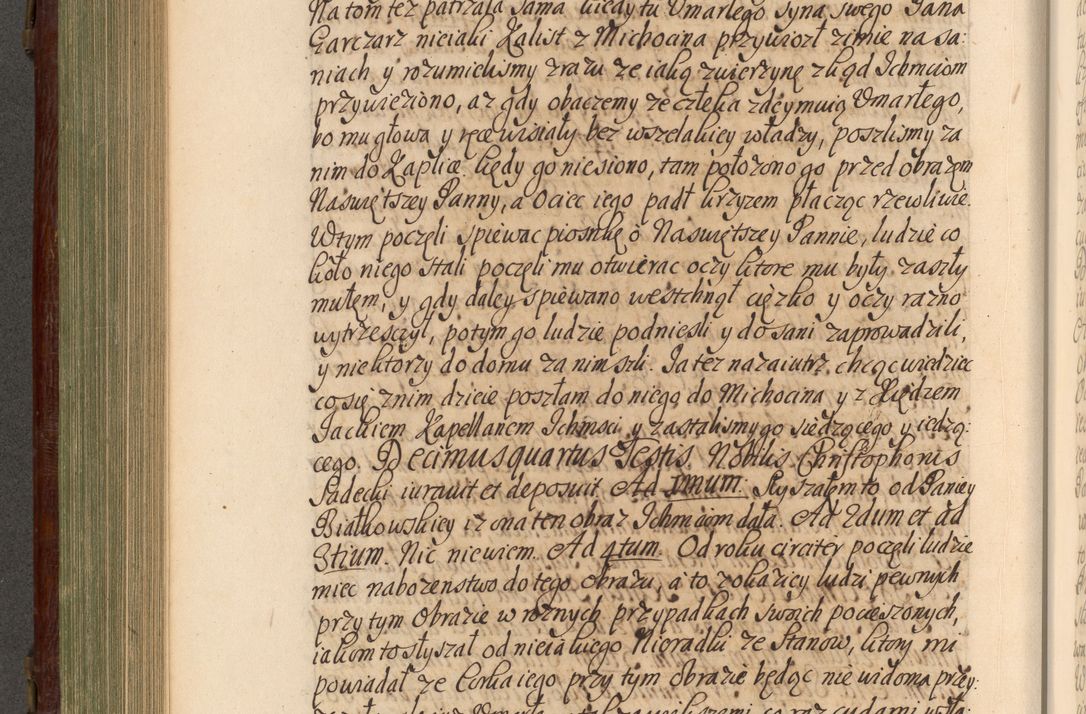 Na tom też patrzała sama kiedy tu Vmarłego syna swego Jana
Garczarz nieiaki Kalist z Michocina przywiozł zimie na sa:
niach y rozumielismy zrazu ze iaką zwierzynę zkąd Ichmciom
przywieziono, az gdy obaczemy ze człeka zdeymuią Vmarłego,
bo mu głowa y ręce wisiały bez wszelakiey władzy, poszlismy za
nim do Kaplice kędy go niesiono, tam położono go przed obrazem
Naswiętszey Panny, a Ociec iego padł krzyzem płacząc rzewliwie.
Wtym poczęli spiewac piosnkę o Naswiętszey Pannie, ludzie co
koło niego stali poczęli mu otwierac oczy ktore mu były zaszły
mułem, y gdy daley spiewano westchnął cięzko y oczy razno
wytrzesczył, potym go ludzie podniesli y do sani zaprowadzili,
y niektorzy do domu za nim szli. Ja tez nazaiutrz chcąc wiedziec
co się z nim dzieie poszłam do niego do Michocina y z Xiędzem
Jackiem Kapellanem Ichmsci y zastalismy go siedzącego y iedzą:
cego. Decimusquartus Testis Nobilis Christophorus
Sadecki iuravit et deposuit. Ad 1mum: Słyszałem to od Paniey
Białkowskiey iz ona ten obraz Ichmciom dała. Ad 2dum et ad
3tium. Nic niewiem. Ad 4tum. Od roku circiter poczęli ludzie
miec nabozenstwo do tego obrazu, a to z okazicy ludzi pewnych
przy tym Obrazie w roznych przypadkach swoich pocieszonych,
iakom to słyszał od nieiakiego Nigradki ze Stanow, ktory mi
powiadał ze Corka iego przy tym obrazie będąc nie widoma przey: